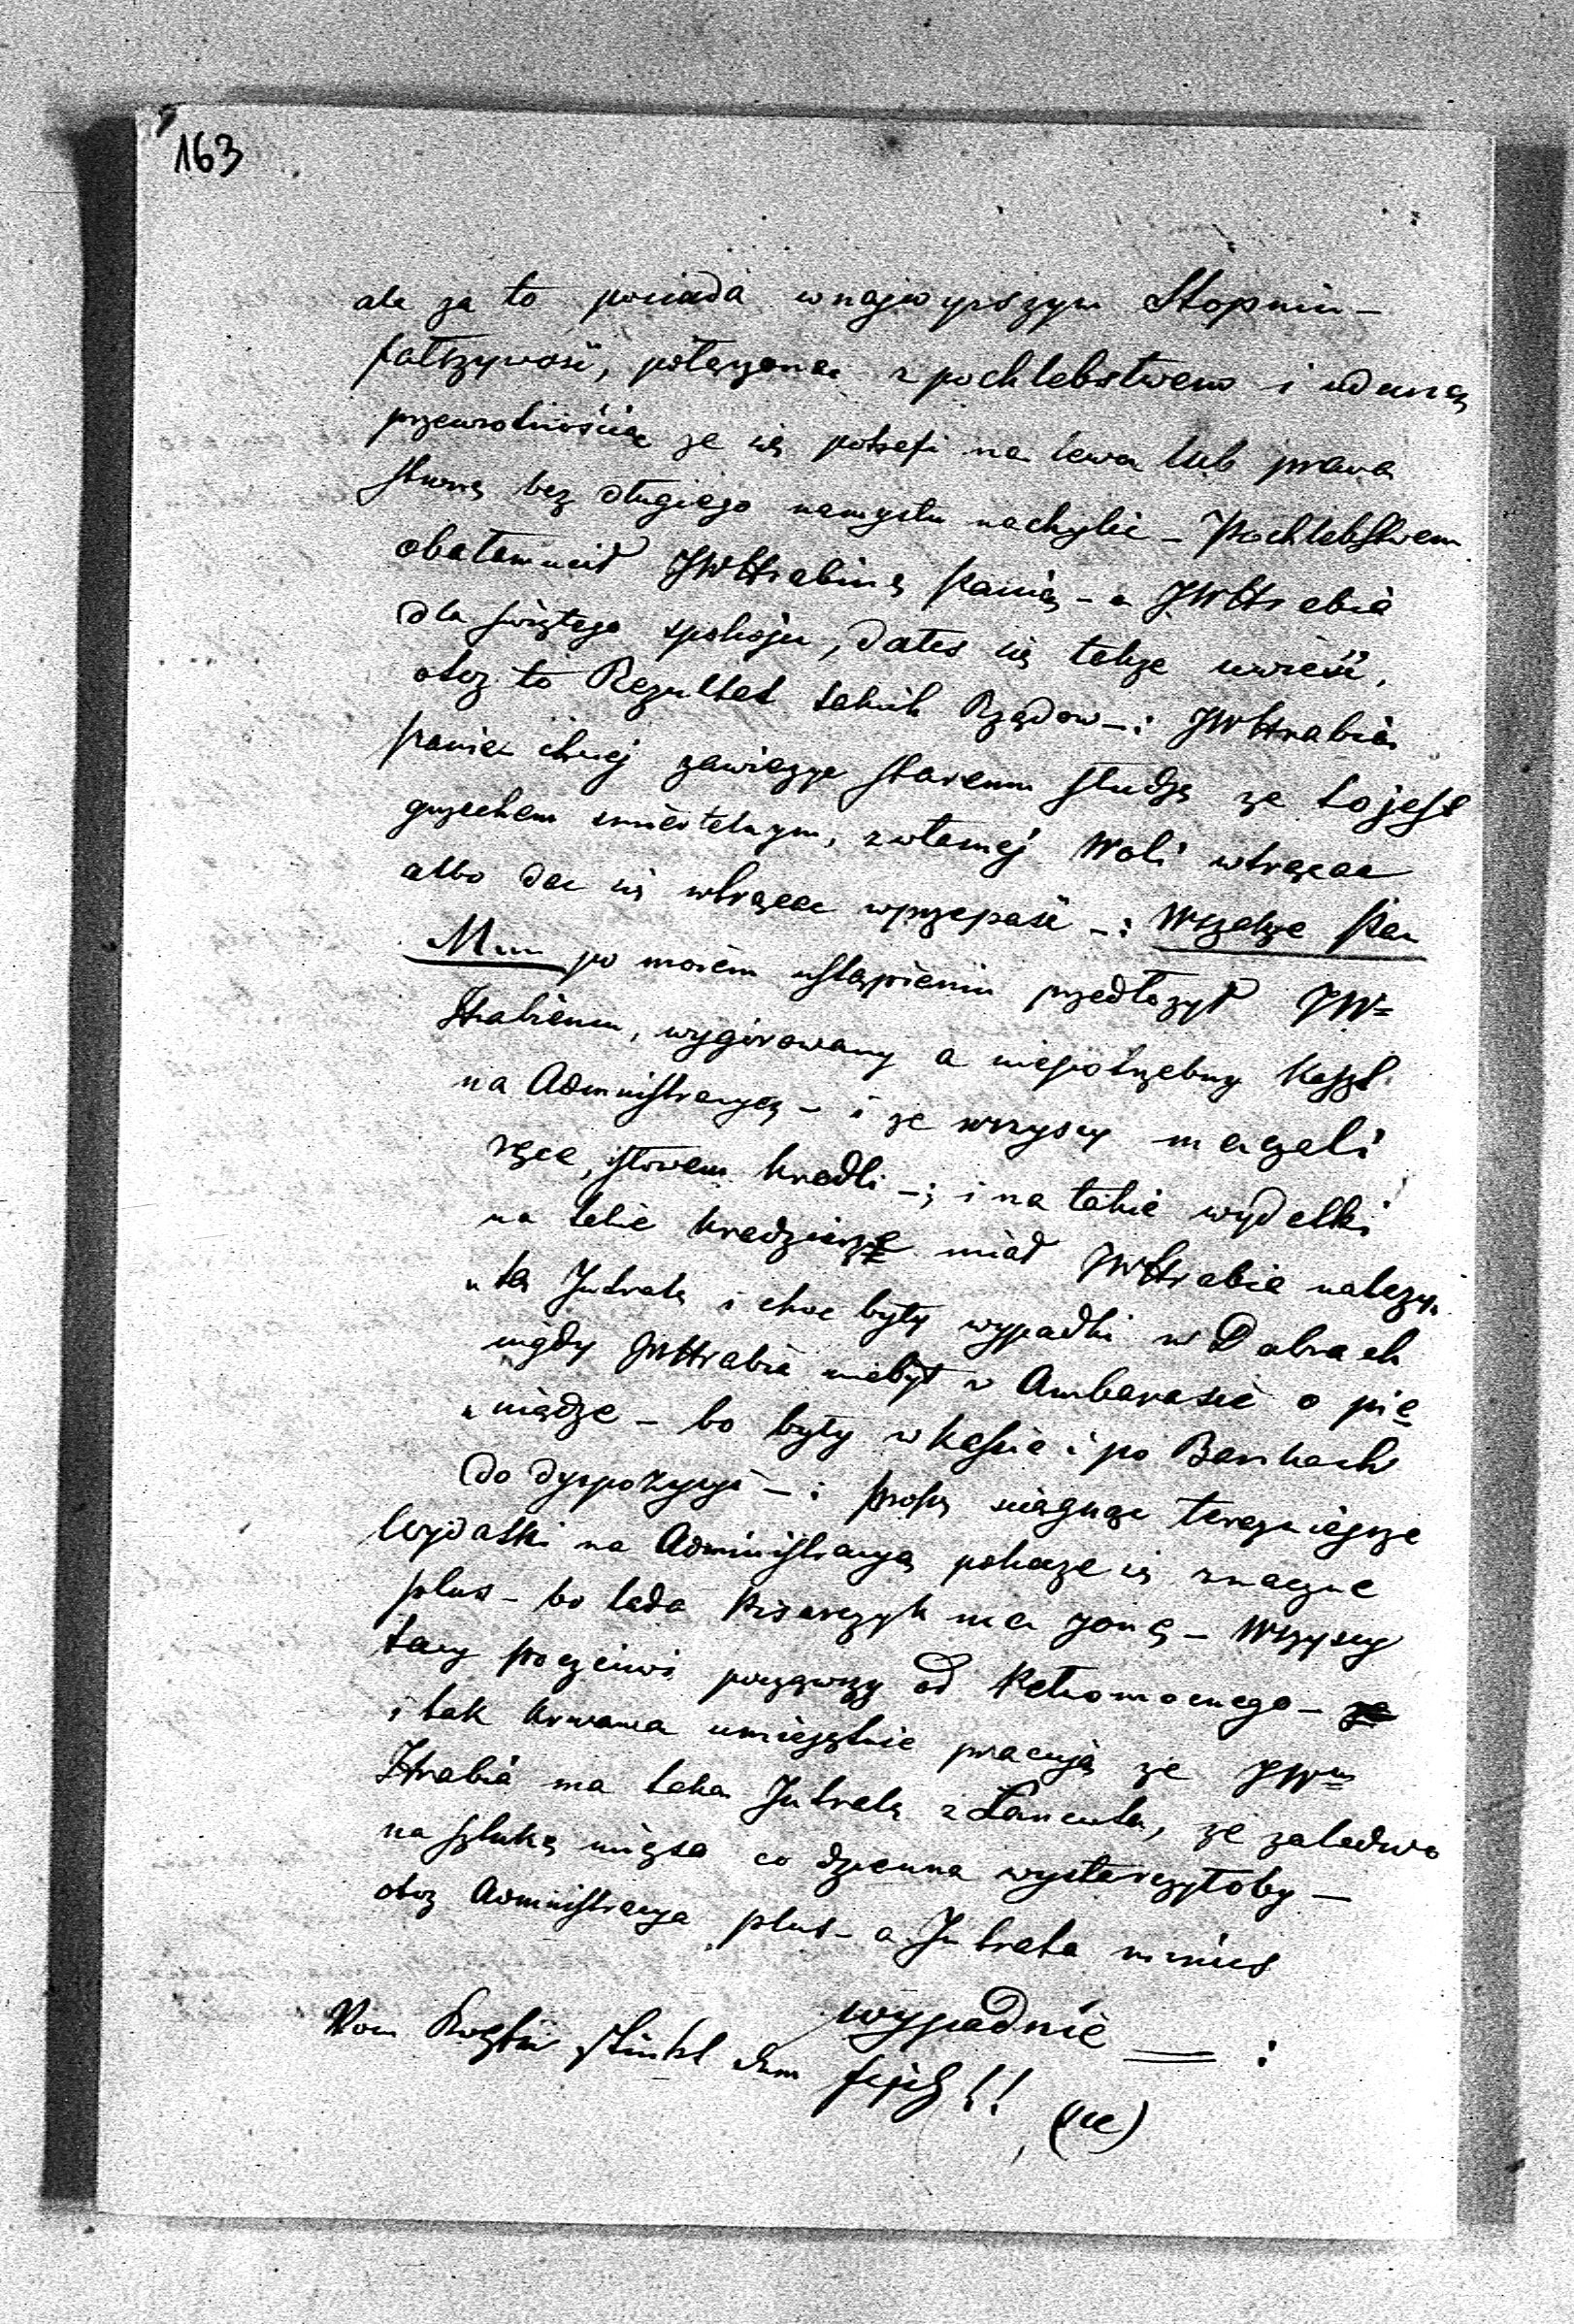 163
ale za to posiada wnajwyższym Stopniu -
fałszywość, połączona z pochlebstwem i udaną
przewrotnością ze się potrafi na lewa lub prawa
stronę bez długiego namysłu nachylic - Pochlebstwem
obałamucił JWHrabinę Panią - a JWHrabia
dla świętego spokoju, dałeś się także uwieść,
otoz to Rezultat takich Rządow -: JWHrabia
panie chciej zawierzyc staremu słudze ze to jest
grzechem smiertelnym, zwłasnej Woli wtrącac
albo dac się wtrącac wprzepaść -: Wszakze Pan
po moiem ustąpieniu przedłozył JW=
Hrabiemu, wygórowany a niepotrzebny koszt
na Administracyą - i ze wszyscy maczali
ręce, słowem kradli -; i na takie wydatki
na takie kradzieże miał JWHrabia nalezy„
„tą Intratę i choc były wypadki w Dobrach
nigdy JWHrabia niebył w Ambarasie o pie
„niądze - bo były w kassie i po Bankach
do dyspozycyi -: proszę sciągnąc teraźniejsze
Wydatki na Administracyą pokaze się znaczne
plus - bo lada Pisarczyk ma zonę - Wszyscy
tacy poczciwi począwszy od Pełnomocnego -
i tak krwawa umiejętnie pracują ze JWny
Hrabia ma taka Intratę z Łancuta, ze zaledwo
na sztukę mięsa co dzienna wystarczyłoby -
otoz Administracya plus - a Intrata minus
wypadnie = :
Vom stinkt dum !!